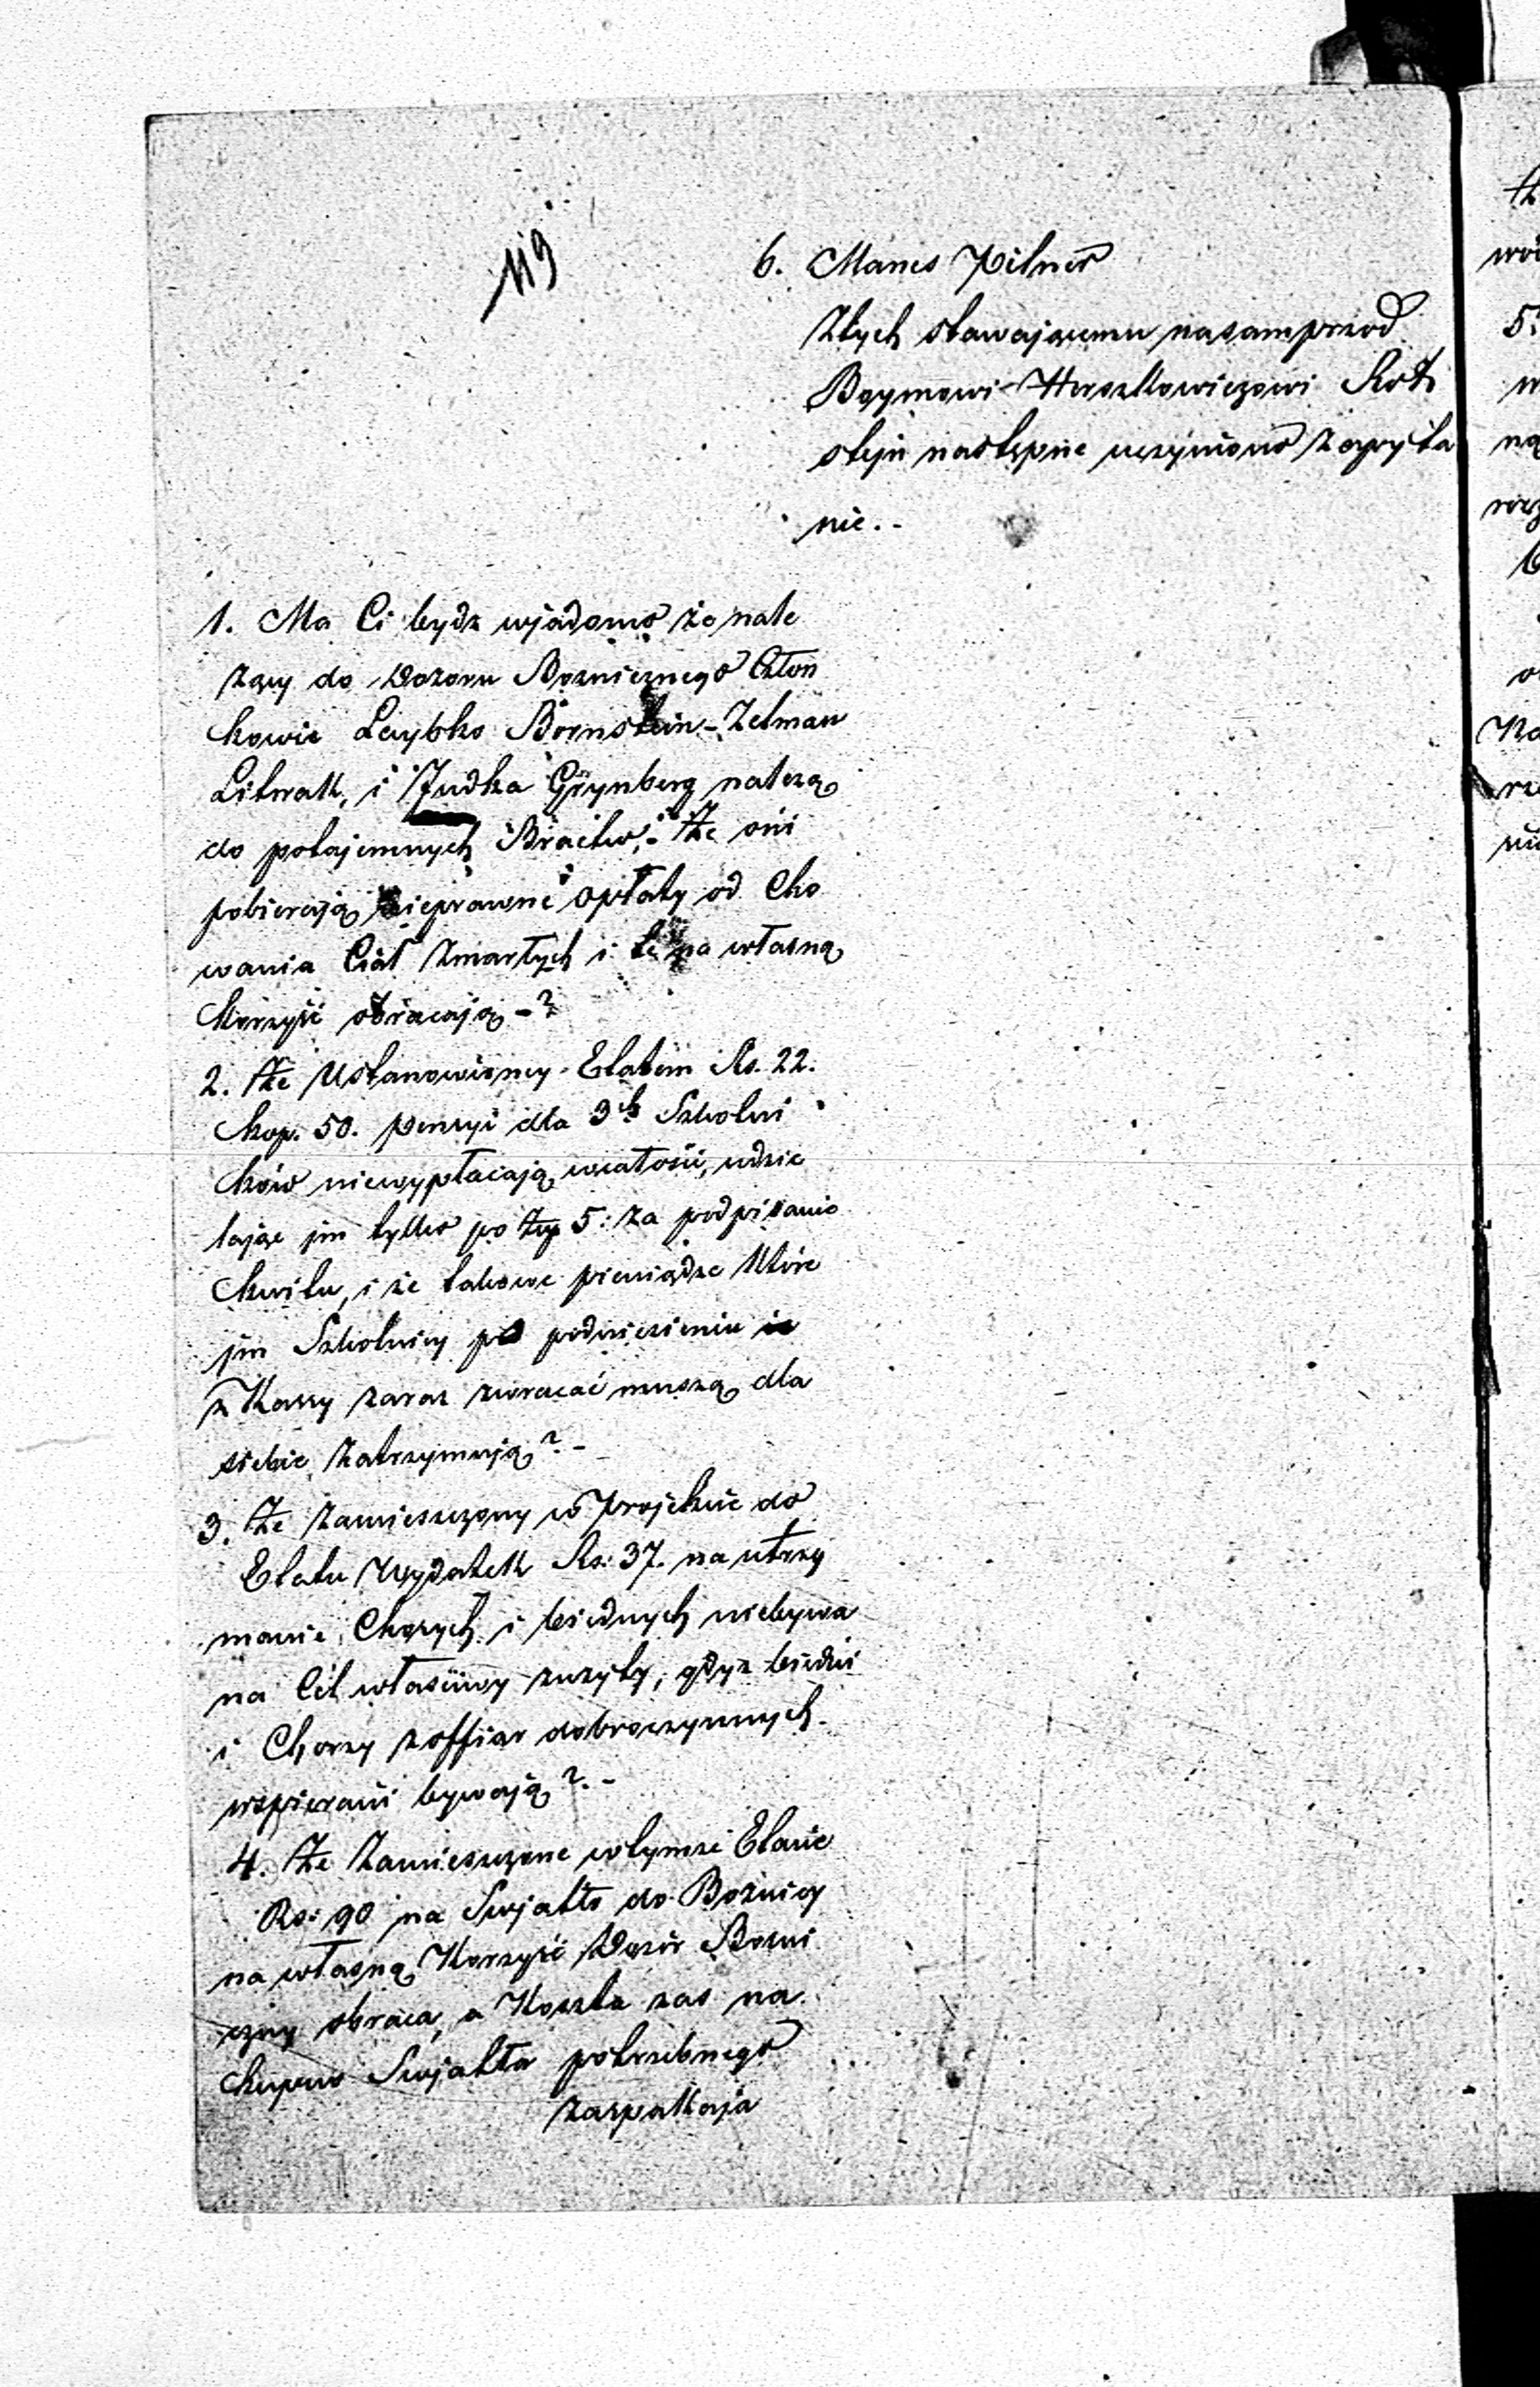 119
6. Manes Pilner
Ztych stawającemu nasamprzod
Boymowi Herszkowiczowi Rot
stejn nastepnie uczyniono zapyta
nie. -
1. Ma Ci bydz wjadomo że nale
zący do Dozoru Boznicznego Człon
kowie Leybko Bornstein - Zelman
Litwak, i Judka Grynberg należą
do potajemnych Bractw, - Że oni
pobierają nieprawne opłaty od Cho
wania Ciał zmarłych i te na własną
Korzyść obracają - ?
2. Że Ustanowioney Etatem Rs. 22.
kop. 50. pensyi dla 3ch Szkolni
ków niewypłacają wcałości, udzie
lając jm tylko po zlp 5: za podpisanie
kwitu, i że takowe pieniądze które
jm Szkolnicy po podniesieniu
z Kassy zaraz zwracać muszą dla
siebie zatrzymują? -
3. Że zamieszczony w Projekcie do
Etatu Wydatek Rs: 37. na utrzy
manie Chorych i biednych niebywa
na Cel własciwy zuzyty, gdyz biedni
i Chorzy z offiar dobroczynnych
wspierani bywają? . -
4. Że Zamieszczone w tymze Etacie
Rs: 90 na Swjatło do Bożnicy
na własną Korzyść Dozór Bozni
czny obraca, a Koszta zas na
kupno Swjatła potrzebnego
zaspakaja